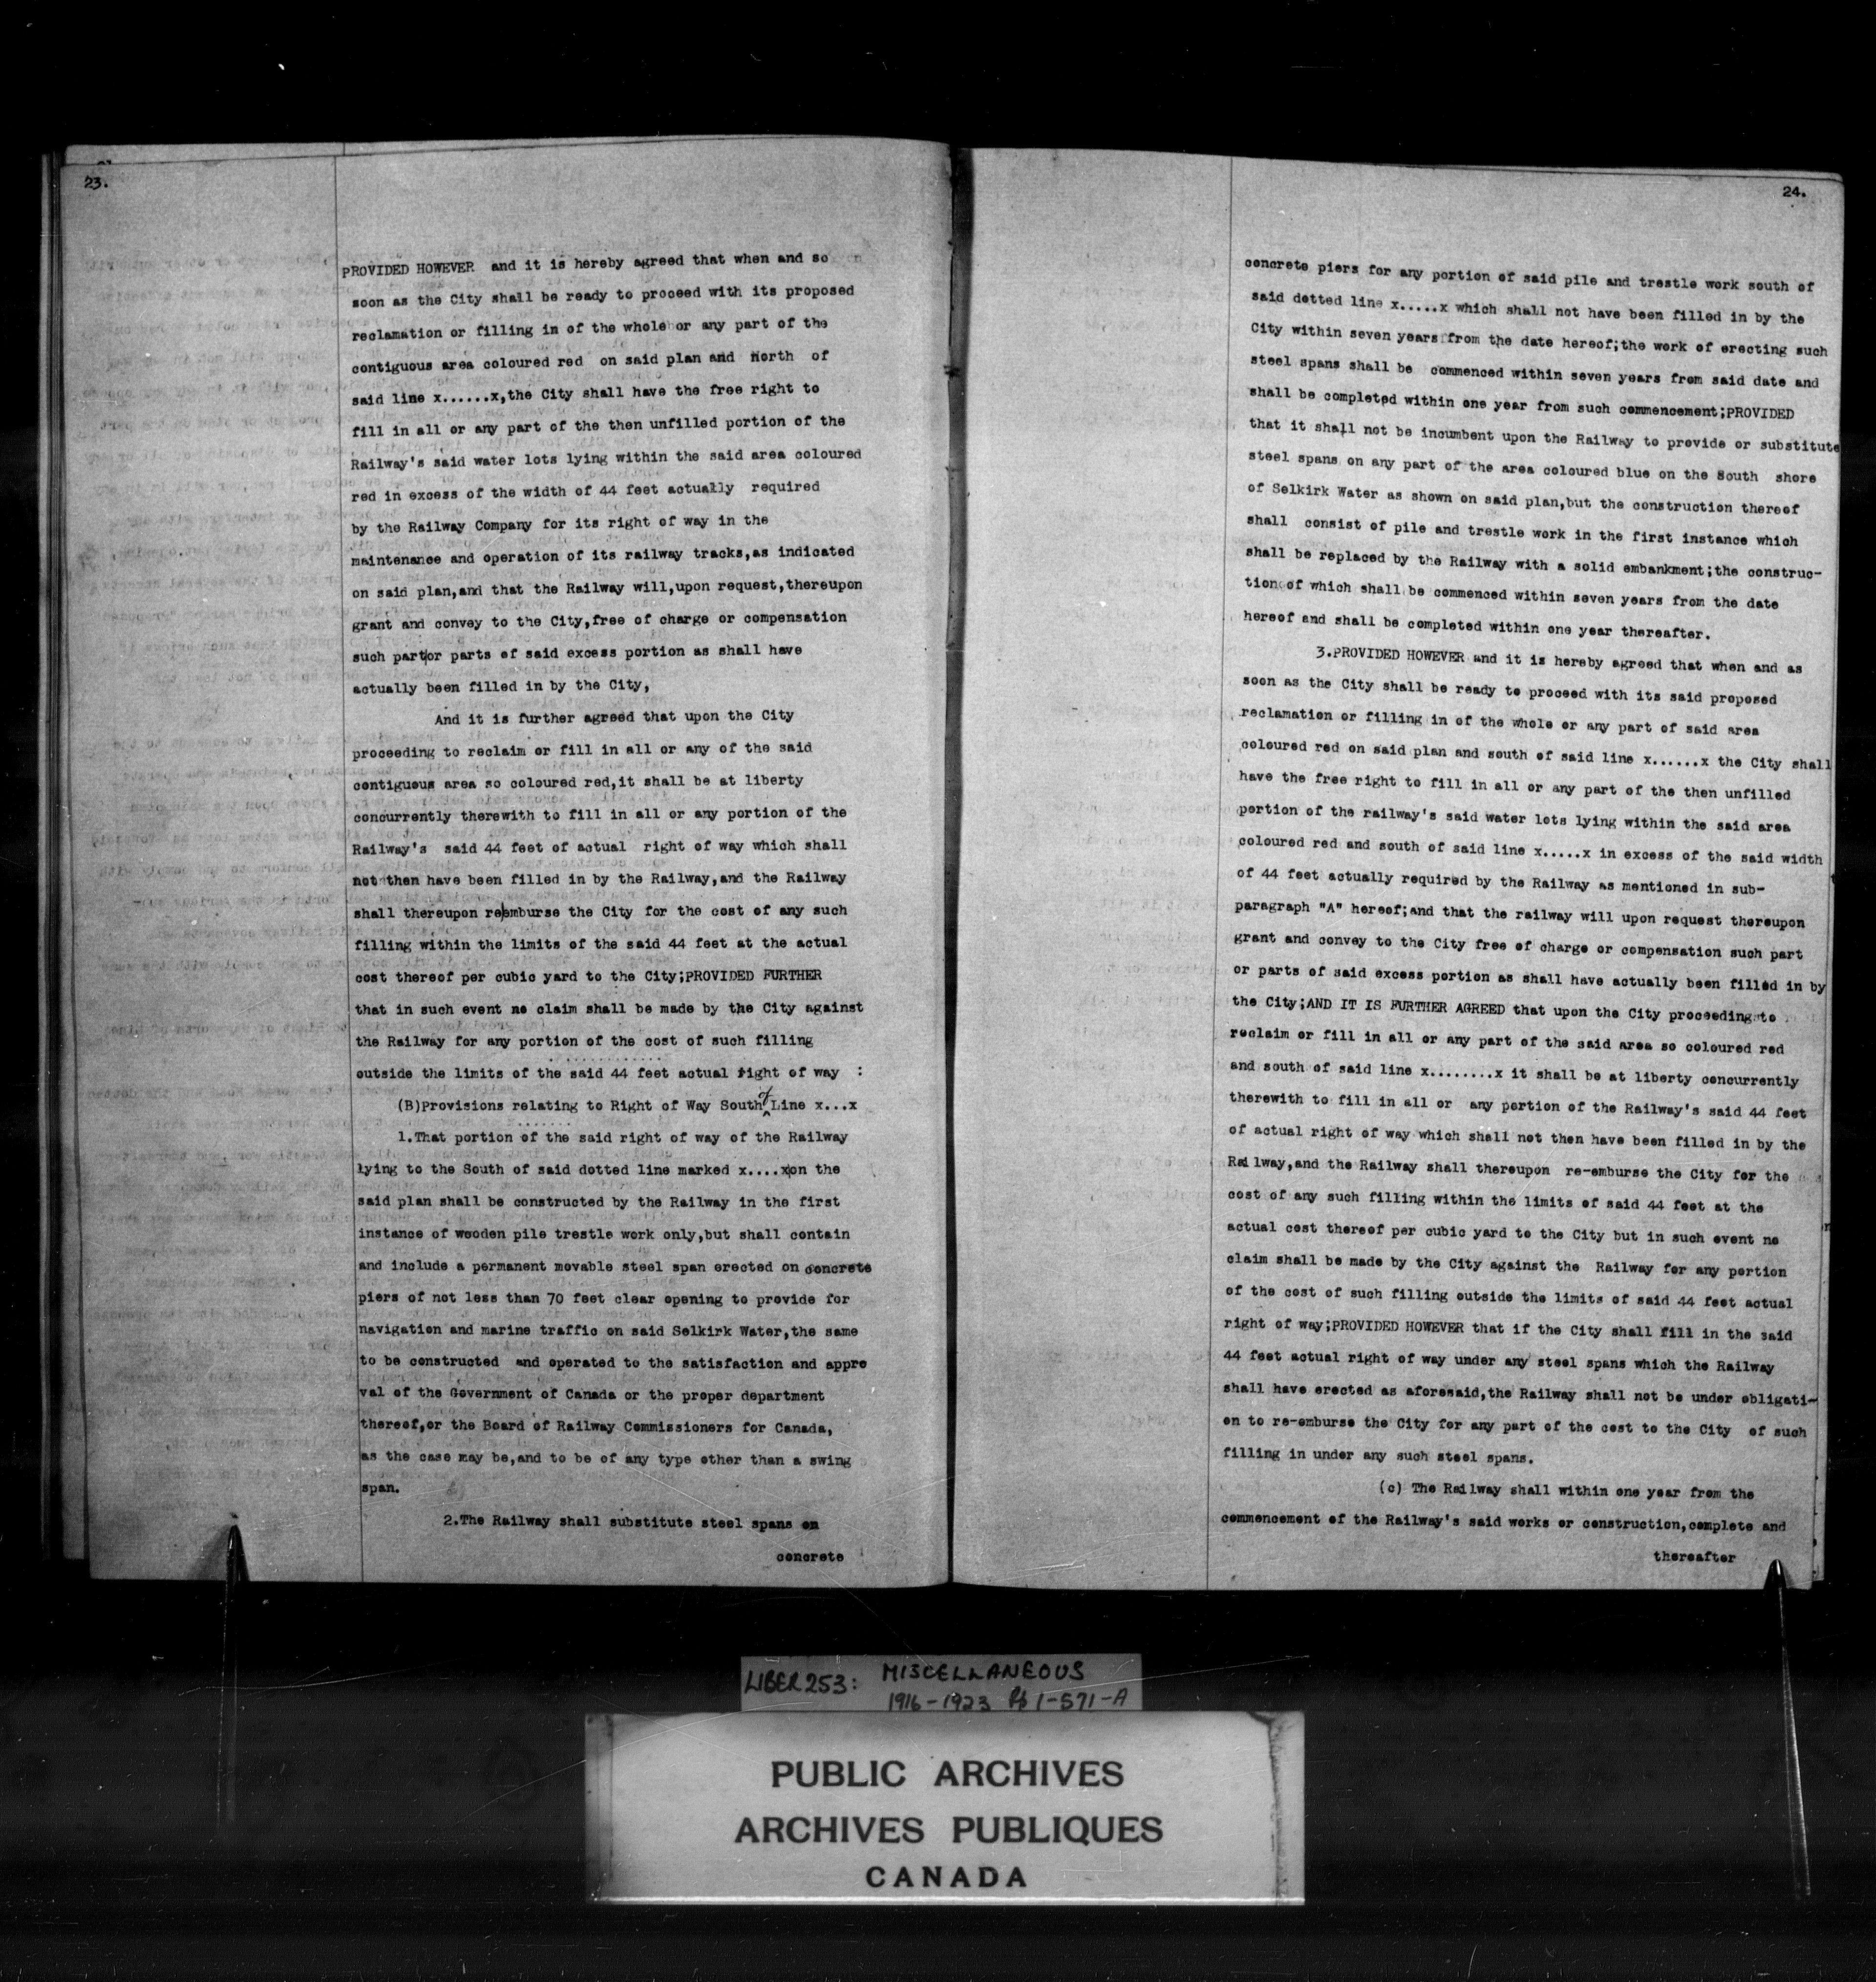 23.
PROVIDED HOWEVER and it is hereby agreed that when and so
soon as the City shall be ready to proceed with its proposed
reclamation or filling in of the whole or any part of the
contiguous area coloured red on said plan and North of
said line x......x,the City shall have the free right to
fill in all or any part of the then unfilled portion of the
Railway's said water lots lying within the said area coloured
red in excess of the width of 44 feet actually required
by the Railway Company for its right of way in the
maintenance and operation of its railway tracks,as indicated
on said plan,and that the Railway will,upon request,thereupon
grant and convey to the City,free of charge or compensation
such part or parts of said excess portion as shall have
actually been filled in by the City,
And it is further agreed that upon the City
proceeding to reclaim or fill in all or any of the said
contiguous area so coloured red,it shall be at liberty
concurrently therewith to fill in all or any portion of the
Railway's said 44 feet of actual right of way which shall
not then have been filled in by the Railway,and the Railway
shall thereupon reemburse the City for the cost of any such
filling within the limits of the said 44 feet at the actual
cost thereof per cubic yard to the City;PROVIDED FURTHER
that in such event no claim shall be made by the City against
the Railway for any portion of the cost of such filling
outside the limits of the said 44 feet actual right of way :
(B)Provisions relating to Right of Way South of Line x...x
1.That portion of the said right of way of the Railway
lying to the South of said dotted line marked x....x on the
said plan shall be constructed by the Railway in the first
instance of wooden pile trestle work only,but shall contain
and include a permanent movable steel span erected on concrete
piers of not less than 70 feet clear opening to provide for
navigation and marine traffic on said Selkirk Water,the same
to be constructed and operated to the satisfaction and appro
val of the Government of Canada or the proper department
thereof,or the Board of Railway Commissioners for Canada,
as the case may be,and to be of any type other than a swing
span.
2.The Railway shall substitute steel spans on
concrete
24.
concrete piers for any portion of said pile and trestle work south of
said dotted line x.....x which shall not have been filled in by the
City within seven years from the date hereof;the work of erecting such
steel spans shall be commenced within seven years from said date and
shall be completed within one year from such commencement;PROVIDED
that it shall not be incumbent upon the Railway to provide or substitute
steel spans on any part of the area coloured blue on the South shore
of Selkirk Water as shown on said plan,but the construction thereof
shall consist of pile and trestle work in the first instance which
shall be replaced by the Railway with a solid embankment;the construc-
tion of which shall be commenced within seven years from the date
hereof and shall be completed within one year thereafter.
3.PROVIDED HOWEVER and it is hereby agreed that when and as
soon as the City shall be ready to proceed with its said proposed
reclamation or filling in of the whole or any part of said area
coloured red on said plan and south of said line x......x the City shall
have the free right to fill in all or any part of the then unfilled
portion of the railway's said water lots lying within the said area
coloured red and south of said line x.....x in excess of the said width
of 44 feet actually required by the Railway as mentioned in sub-
paragraph "A" hereof;and that the railway will upon request thereupon
grant and convey to the City free of charge or compensation such part
or parts of said excess portion as shall have actually been filled in by
the City;AND IT IS FURTHER AGREED that upon the City proceeding to
reclaim or fill in all or any part of the said area so coloured red
and south of said line x........x it shall be at liberty concurrently
therewith to fill in all or any portion of the Railway's said 44 feet
of actual right of way which shall not then have been filled in by the
Railway,and the Railway shall thereupon re-emburse the City for the
cost of any such filling within the limits of said 44 feet at the
actual cost thereof per cubic yard to the City but in such event no
claim shall be made by the City against the Railway for any portion
of the cost of such filling outside the limits of said 44 feet actual
right of way;PROVIDED HOWEVER that if the City shall fill in the said
44 feet actual right of way under any steel spans which the Railway
shall have erected as aforesaid,the Railway shall not be under obligati-
on to re-emburse the City for any part of the cost to the City of such
filling in under any such steel spans.
(c) The Railway shall within one year from the
commencement of the Railway's said works or construction,complete and
thereafter
LIBER 253: MISCELLANEOUS
1916-1923 Pp 1-571-A
PUBLIC ARCHIVES
ARCHIVES PUBLIQUES
CANADA